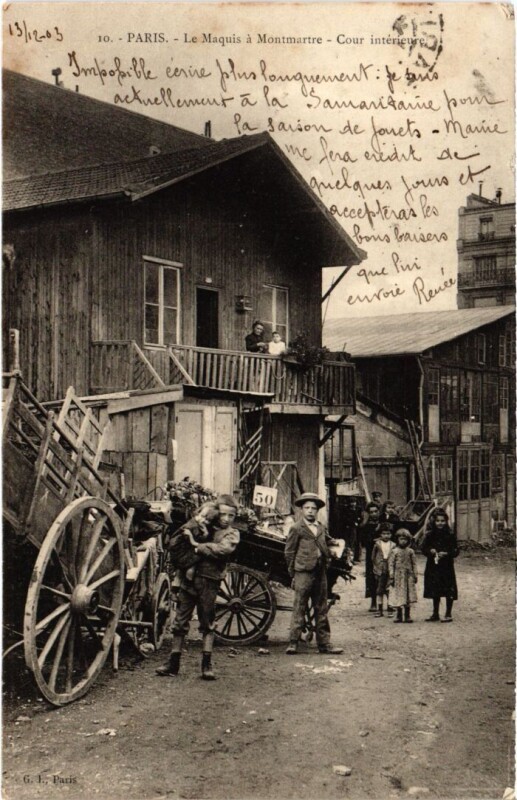 13/12-03
10. - PARIS. - Le Maquis à Montmartre - Cour intérieure.
Impossible écrire plus longuement : je suis
actuellement à la Samaritaine pour
la saison de jouets - Marie
me fera crédit de
quelques jours et
accepteras les
bons baisers
que lui
envoie Renée
50
G. I., Paris